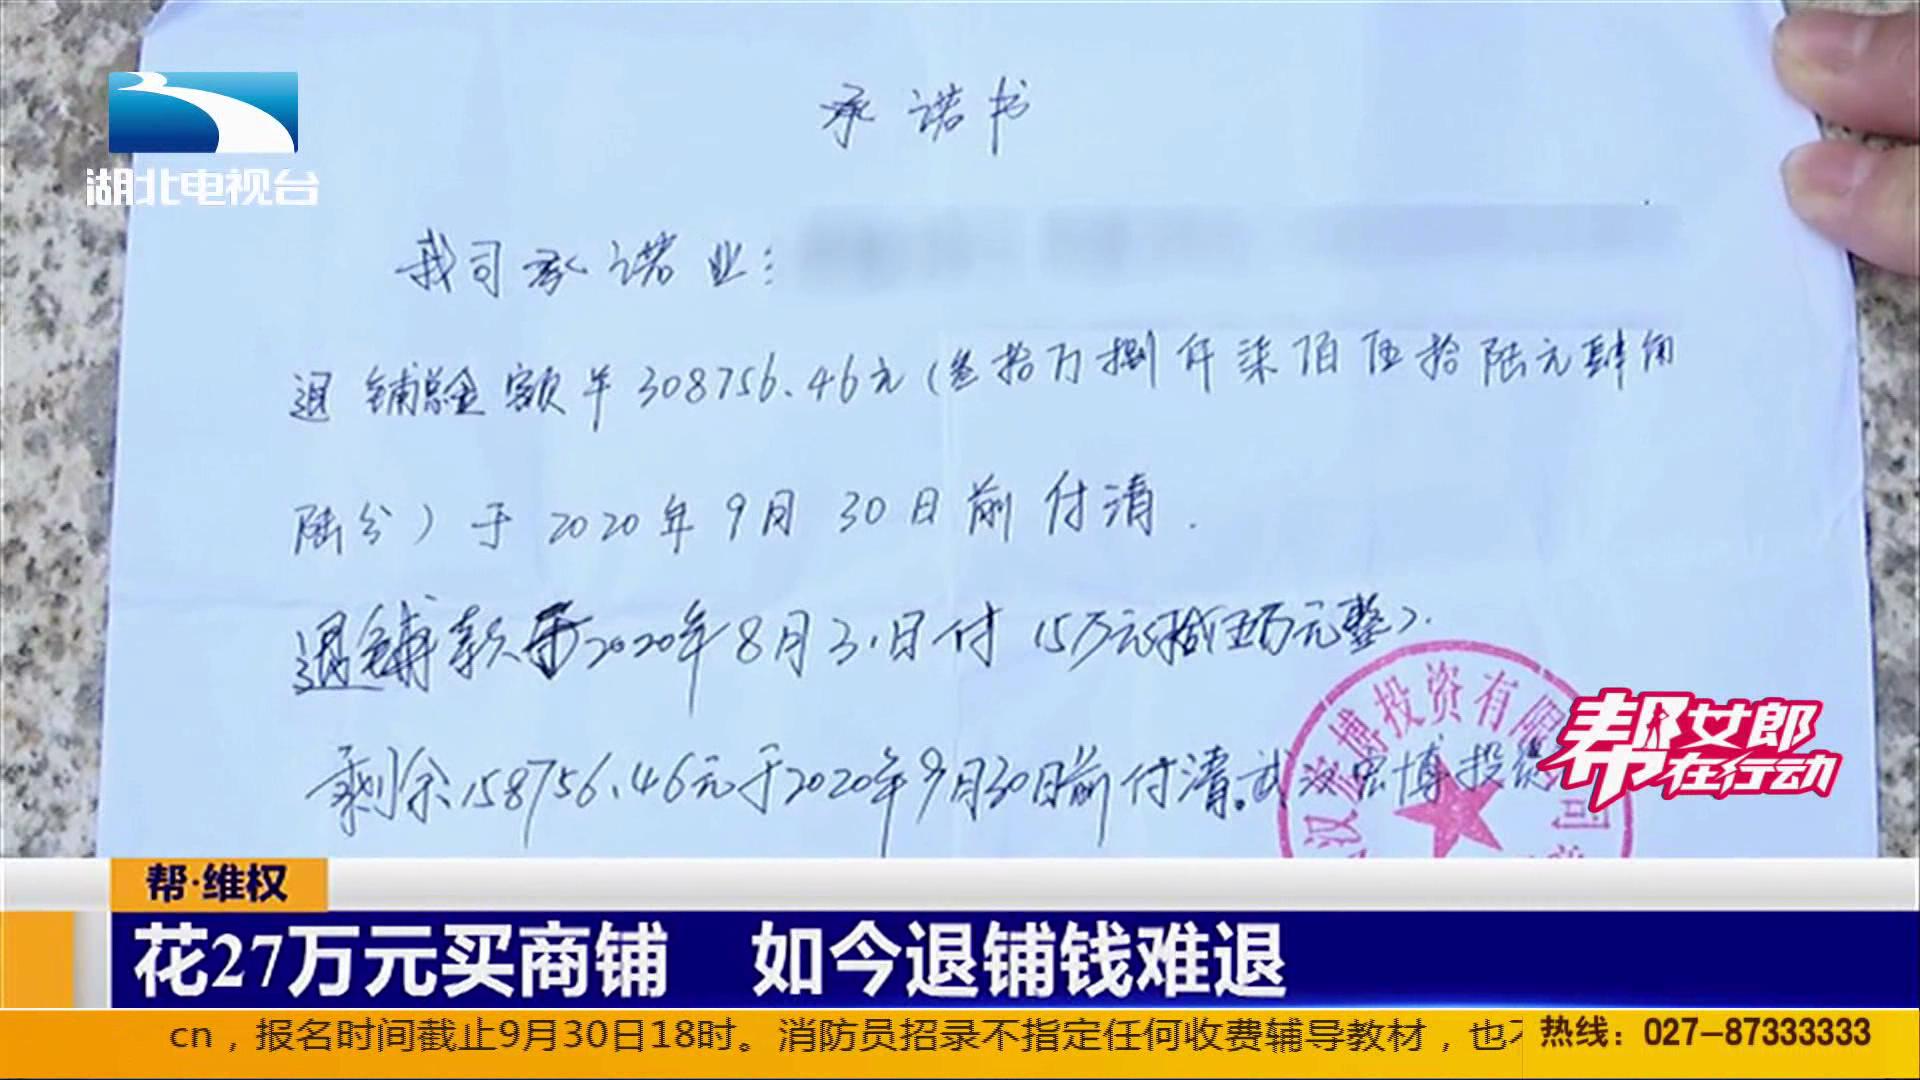 湖北电视台
承诺书
我司承诺业:
退铺总金额￥308756.46元(叁拾万捌仟柒佰伍拾陆元肆角
陆分)于2020年9月30日前付清.
退铺款于2020年8月31日付15万元(拾伍万元整).
剩余158756.46元于2020年9月30日前付清。武汉宏博投
汉宏博投资有限 司
帮女郎
在行动
帮·维权
花27万元买商铺 如今退铺钱难退
cn，报名时间截止9月30日18时。消防员招录不指定任何收费辅导教材，也
热线：027-87333333